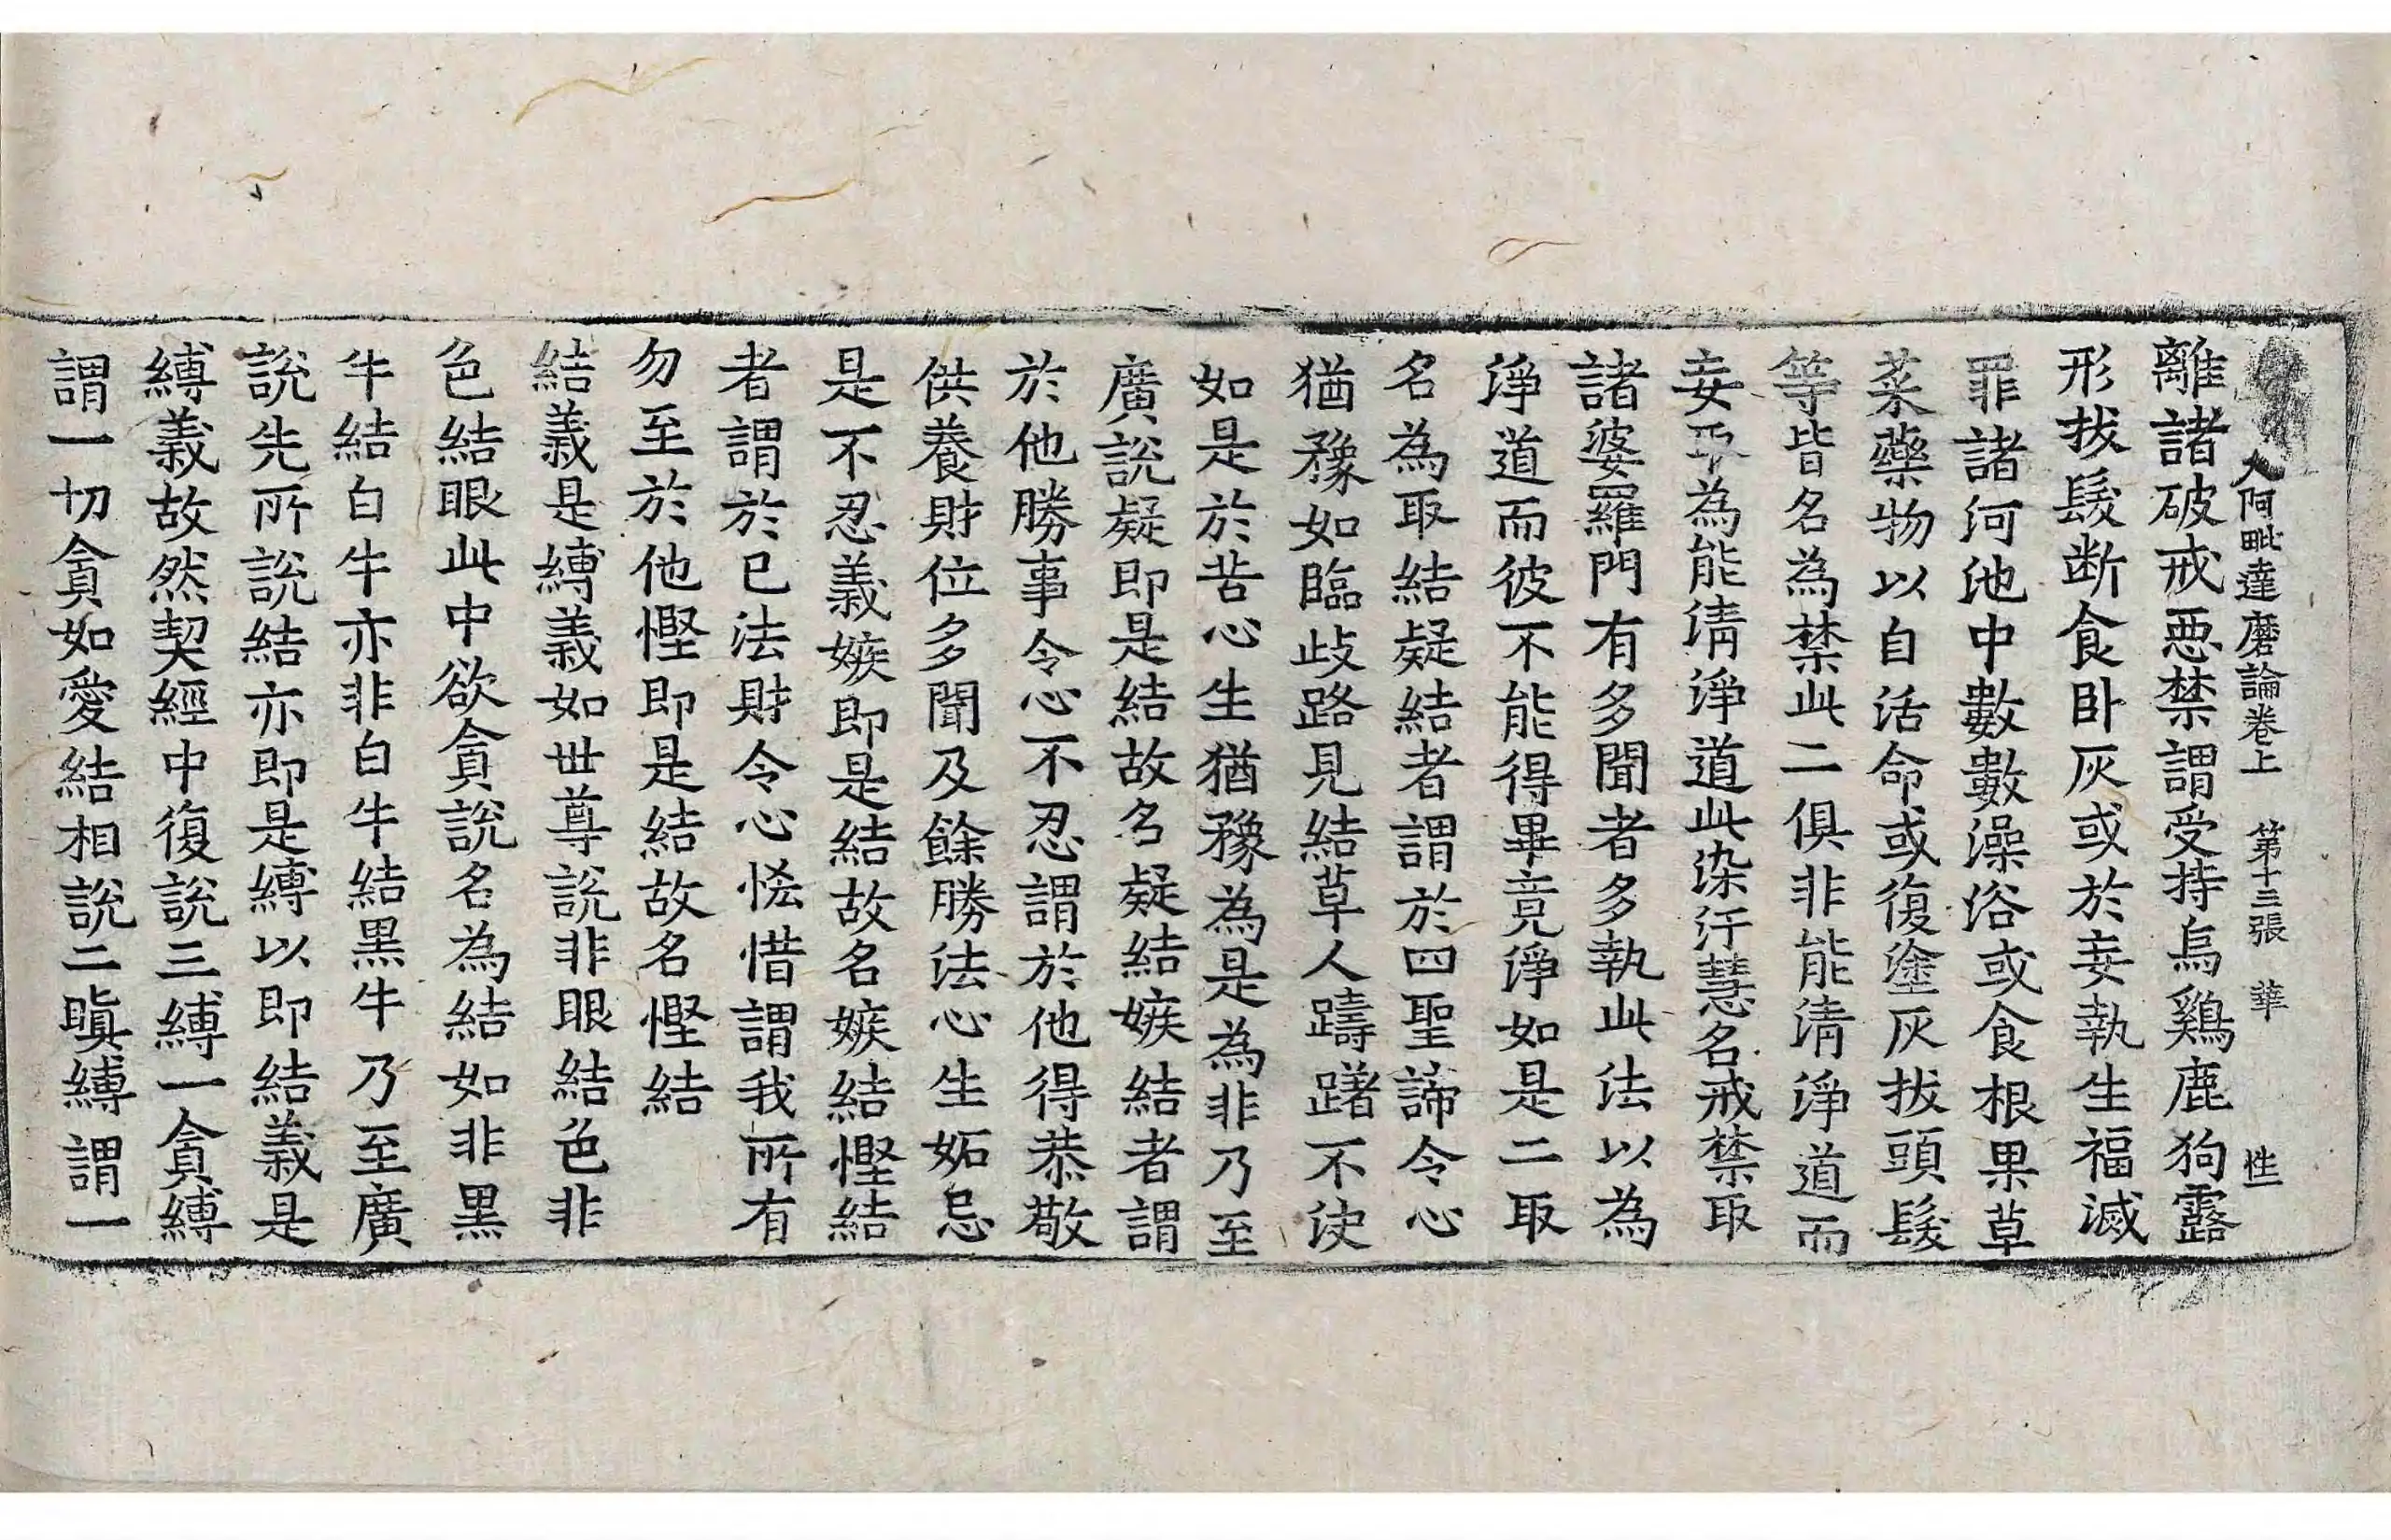 入阿毗達磨論卷上 第十三張 華 性
離諸破戒惡禁謂受持烏鷄鹿狗露
形拔髮断食卧灰或於妄執生福滅
罪諸河池中數數澡浴或食根果草
菜藥物以自活命或復塗灰拔頭髮
等皆名為禁此二俱非能清淨道而
妄取為能清淨道此染汙慧名戒禁取
諸婆羅門有多聞者多執此法以為
淨道而彼不能得畢竟淨如是二取
名為取結疑結者謂於四聖諦令心
猶豫如臨歧路見結草人躊躇不決
如是於苦心生猶豫為是為非乃至
廣說疑即是結故名疑結嫉結者謂
於他勝事令心不忍謂於他得恭敬
供養財位多聞及餘勝法心生妬忌
是不忍義嫉即是結故名嫉結慳結
者謂於已法財令心悋惜謂我所有
勿至於他慳即是結故名慳結
結義是縛義如世尊說非眼結色非
色結眼此中欲貪說名為結如非黑
牛結白牛亦非白牛結黑牛乃至廣
說先所說結亦即是縛以即結義是
縛義故然契經中復說三縛一貪縛
謂一切貪如愛結相說二瞋縛謂一